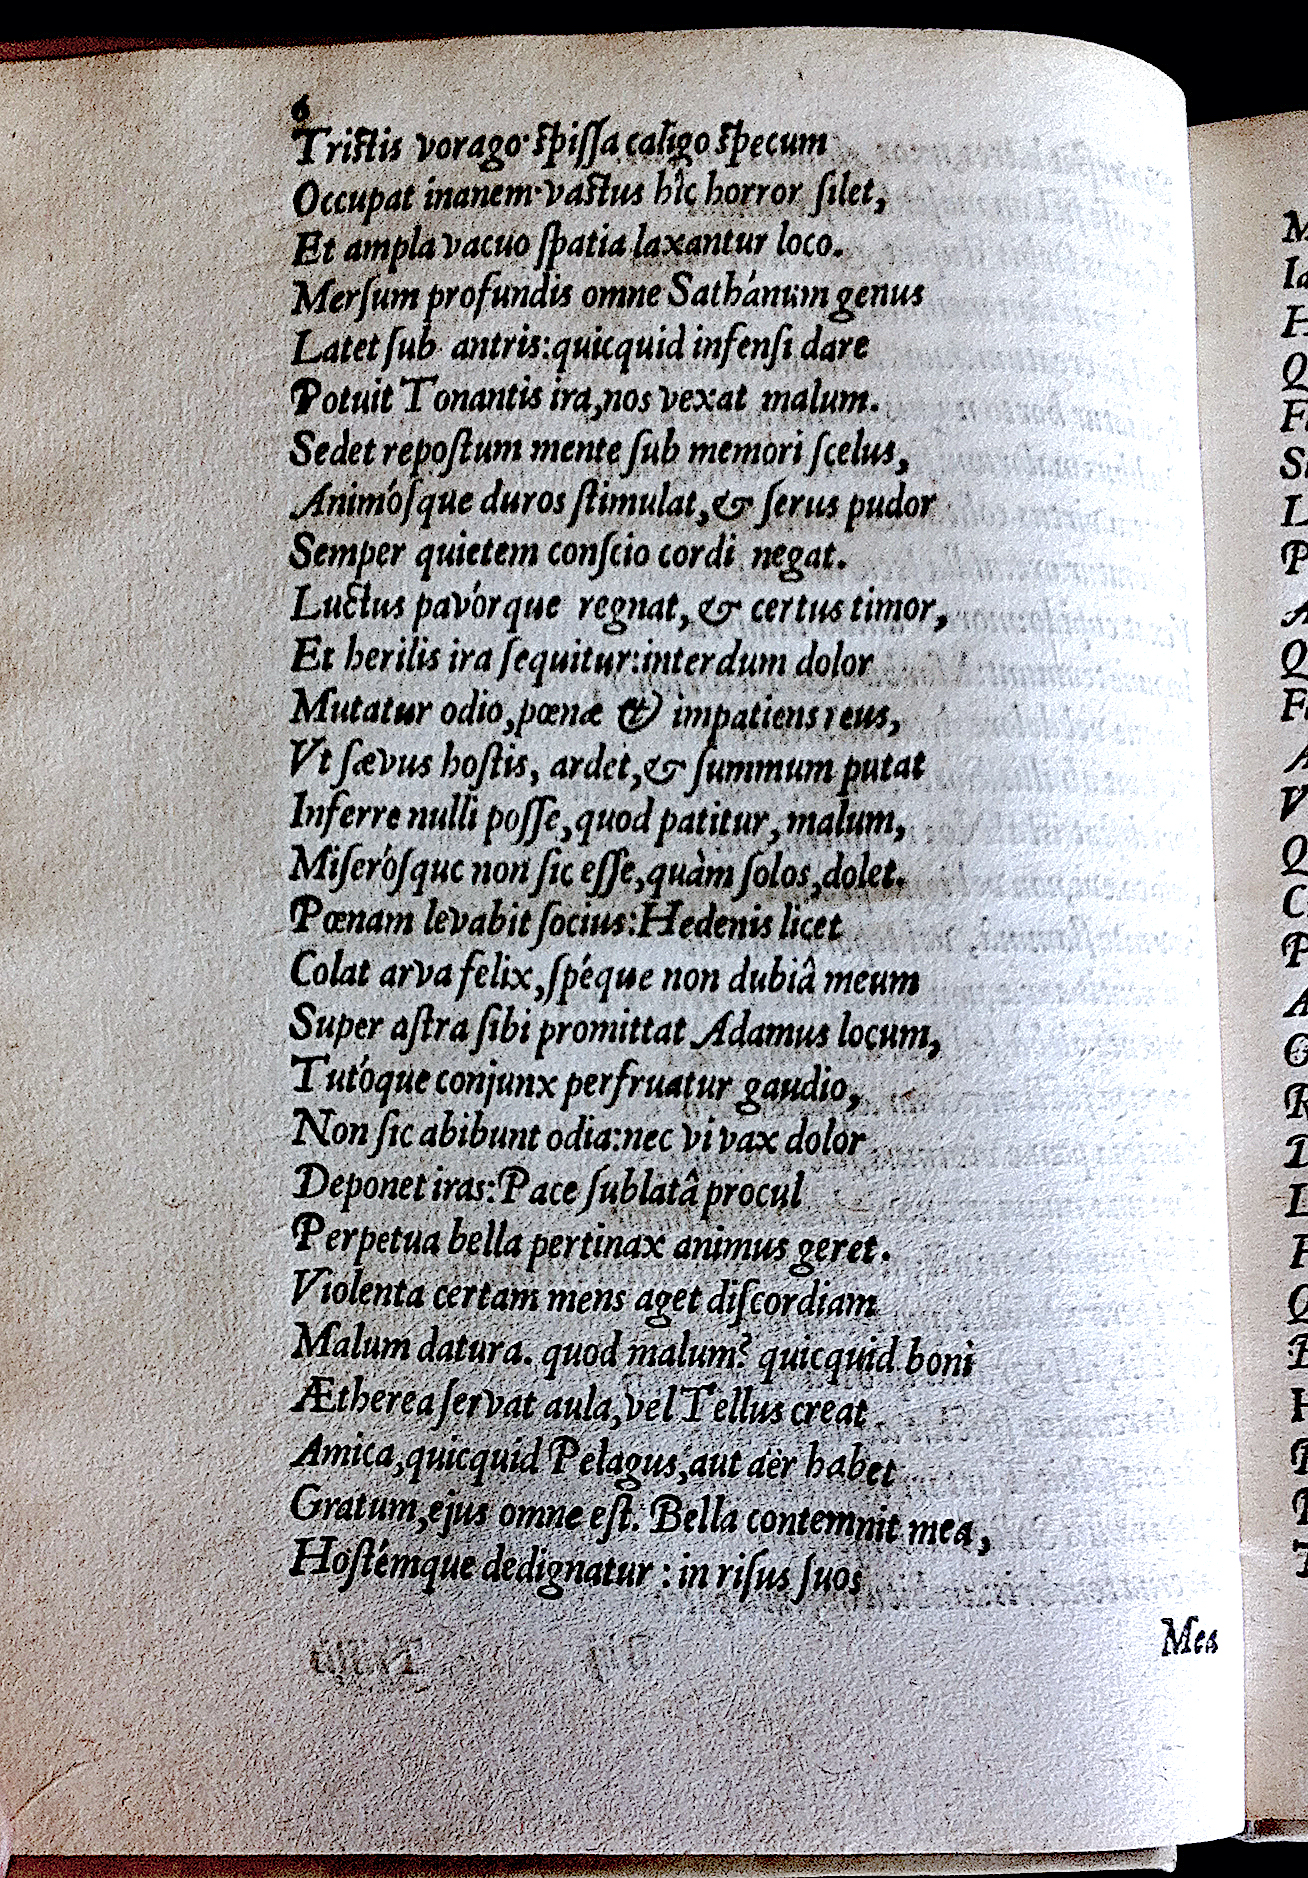 6
Triſtis vorago· ſpiſſa caligo ſpecum
Occupat inanem· vaſtus hîc horror ſilet,
Et ampla vacuo ſpatia laxantur loco.
Merſum profundis omne Sathánum genus
Latet ſub antris: quicquid infenſi dare
Potuit Tonantis ira, nos vexat malum.
Sedet repoſtum mente ſub memori ſcelus,
Animóſque duros ſtimulat, & ſerus pudor
Semper quietem conſcio cordi negat.
Luctus pavórque regnat, & certus timor,
Et herilis ira ſequitur: interdum dolor
Mutatur odio, pœnæ & impatiens reus,
Vt ſævus hoſtis, ardet, & ſummum putat
Inferre nulli poſſe, quod patitur, malum,
Miſeróſque non ſic eſſe, quàm ſolos, dolet.
Pœnam levabit ſocius: Hedenis licet
Colat arva felix, ſpéque non dubiâ meum
Super aſtra ſibi promittat Adamus locum,
Tutóque conjunx perfruatur gaudio,
Non ſic abibunt odia: nec vivax dolor
Deponet iras: Pace ſublatâ procul
Perpetua bella pertinax animus geret.
Violenta certam mens aget diſcordiam
Malum datura. quod malum? quicquid boni
Ætherea ſervat aula, vel Tellus creat
Amica, quicquid Pelagus, aut aër habet
Gratum, ejus omne eſt. Bella contemnit mea,
Hoſtémque dedignatur : in riſus ſuos
Mea